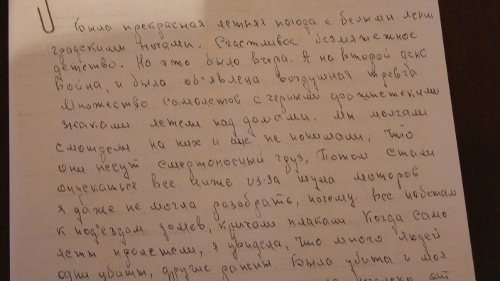 Была прекрасная летняя погода с белыми ленин
градскими ночами. Счастливое безмятежное
детство. Но это было вчера. А на второй день
Война, и была об'явлена воздушная тревога
Множество самолетов с черными фашистскими
знаками летели над домами. Мы молчали
смотрели на них и еще не понимали, что
они несут смертоносный груз. Потом стали
опускаться все ниже из-за шума моторов
я даже не могла разобрать, почему все побежали
к под'ездам домов, кричали плакали. Когда само
леты пролетели, я увидела, что много людей
одни убиты, другие ранены. Была убита и моя